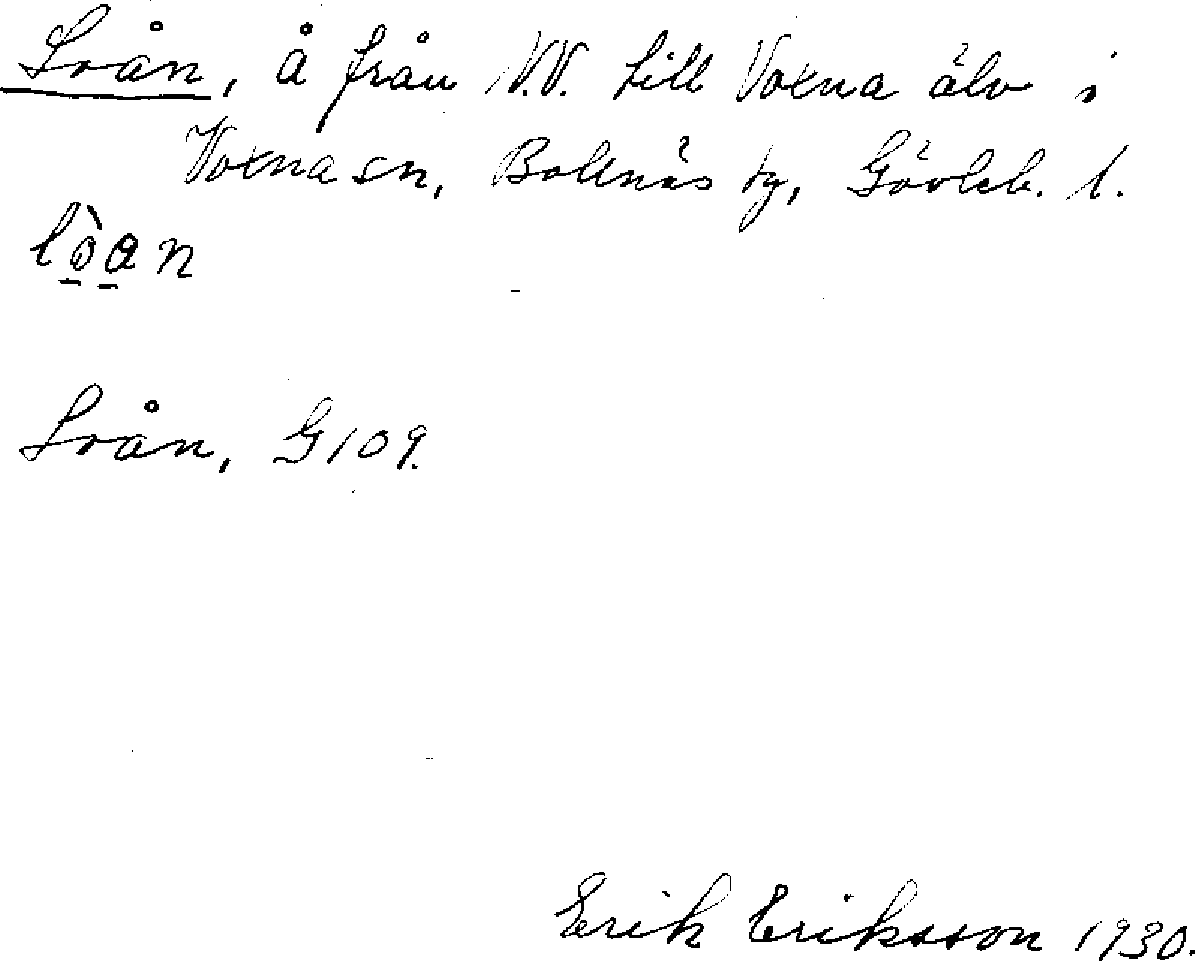 Loån, å från N.V. till Voxna älv i
Voxna sn, Bollnäs tg, Gävleb. l.
lòan
Loån, G109.
Erik Eriksson 1930.